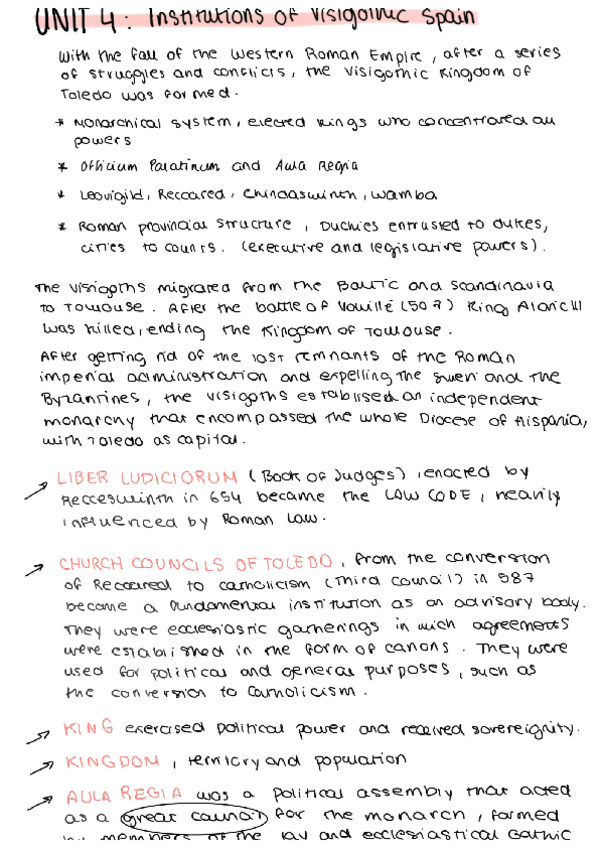 UNIT 4: Institutions of Visigothic Spain
With the fall of the Western Roman Empire, after a series
of struggles and conflicts, the Visigothic Kingdom of
Toledo was formed.
* Monarchical system, elected kings who concentrated all
powers
* Officium Palatinum and Aula Regia
* Leovigild, Reccared, Chindaswinth, Wamba
* Roman provincial structure, Duchies entrusted to dukes,
cities to counts. (executive and legislative powers).
The Visigoths migrated from the Baltic and Scandinavia
to Toulouse. After the battle of Vouillé (507) King Alaric II
was killed, ending the Kingdom of Toulouse.
After getting rid of the last remnants of the Roman
imperial administration and expelling the Suevi and the
Byzantines, the Visigoths establised an independent
monarchy that encompassed the whole Diocese of Hispania,
with Toledo as capital.
→ LIBER LUDICIORUM (Book of Judges), enacted by
Recceswinth in 654 became the LAW CODE, heavily
influenced by Roman Law.
→ CHURCH COUNCILS OF TOLEDO, from the conversion
of Reccared to catholicism (Third Council) in 587
become a fundamental institution as an advisory body.
They were ecclesiastic gatherings in wich agreements
were established in the form of canons. They were
used for political and general purposes, such as
the conversion to Catholicism.
→ KING exercised political power and received sovereignity.
→ KINGDOM, territory and population
→ AULA REGIA was a political assembly that acted
as a great council for the monarch, formed
by members of the lay and ecclesiastical Gothic